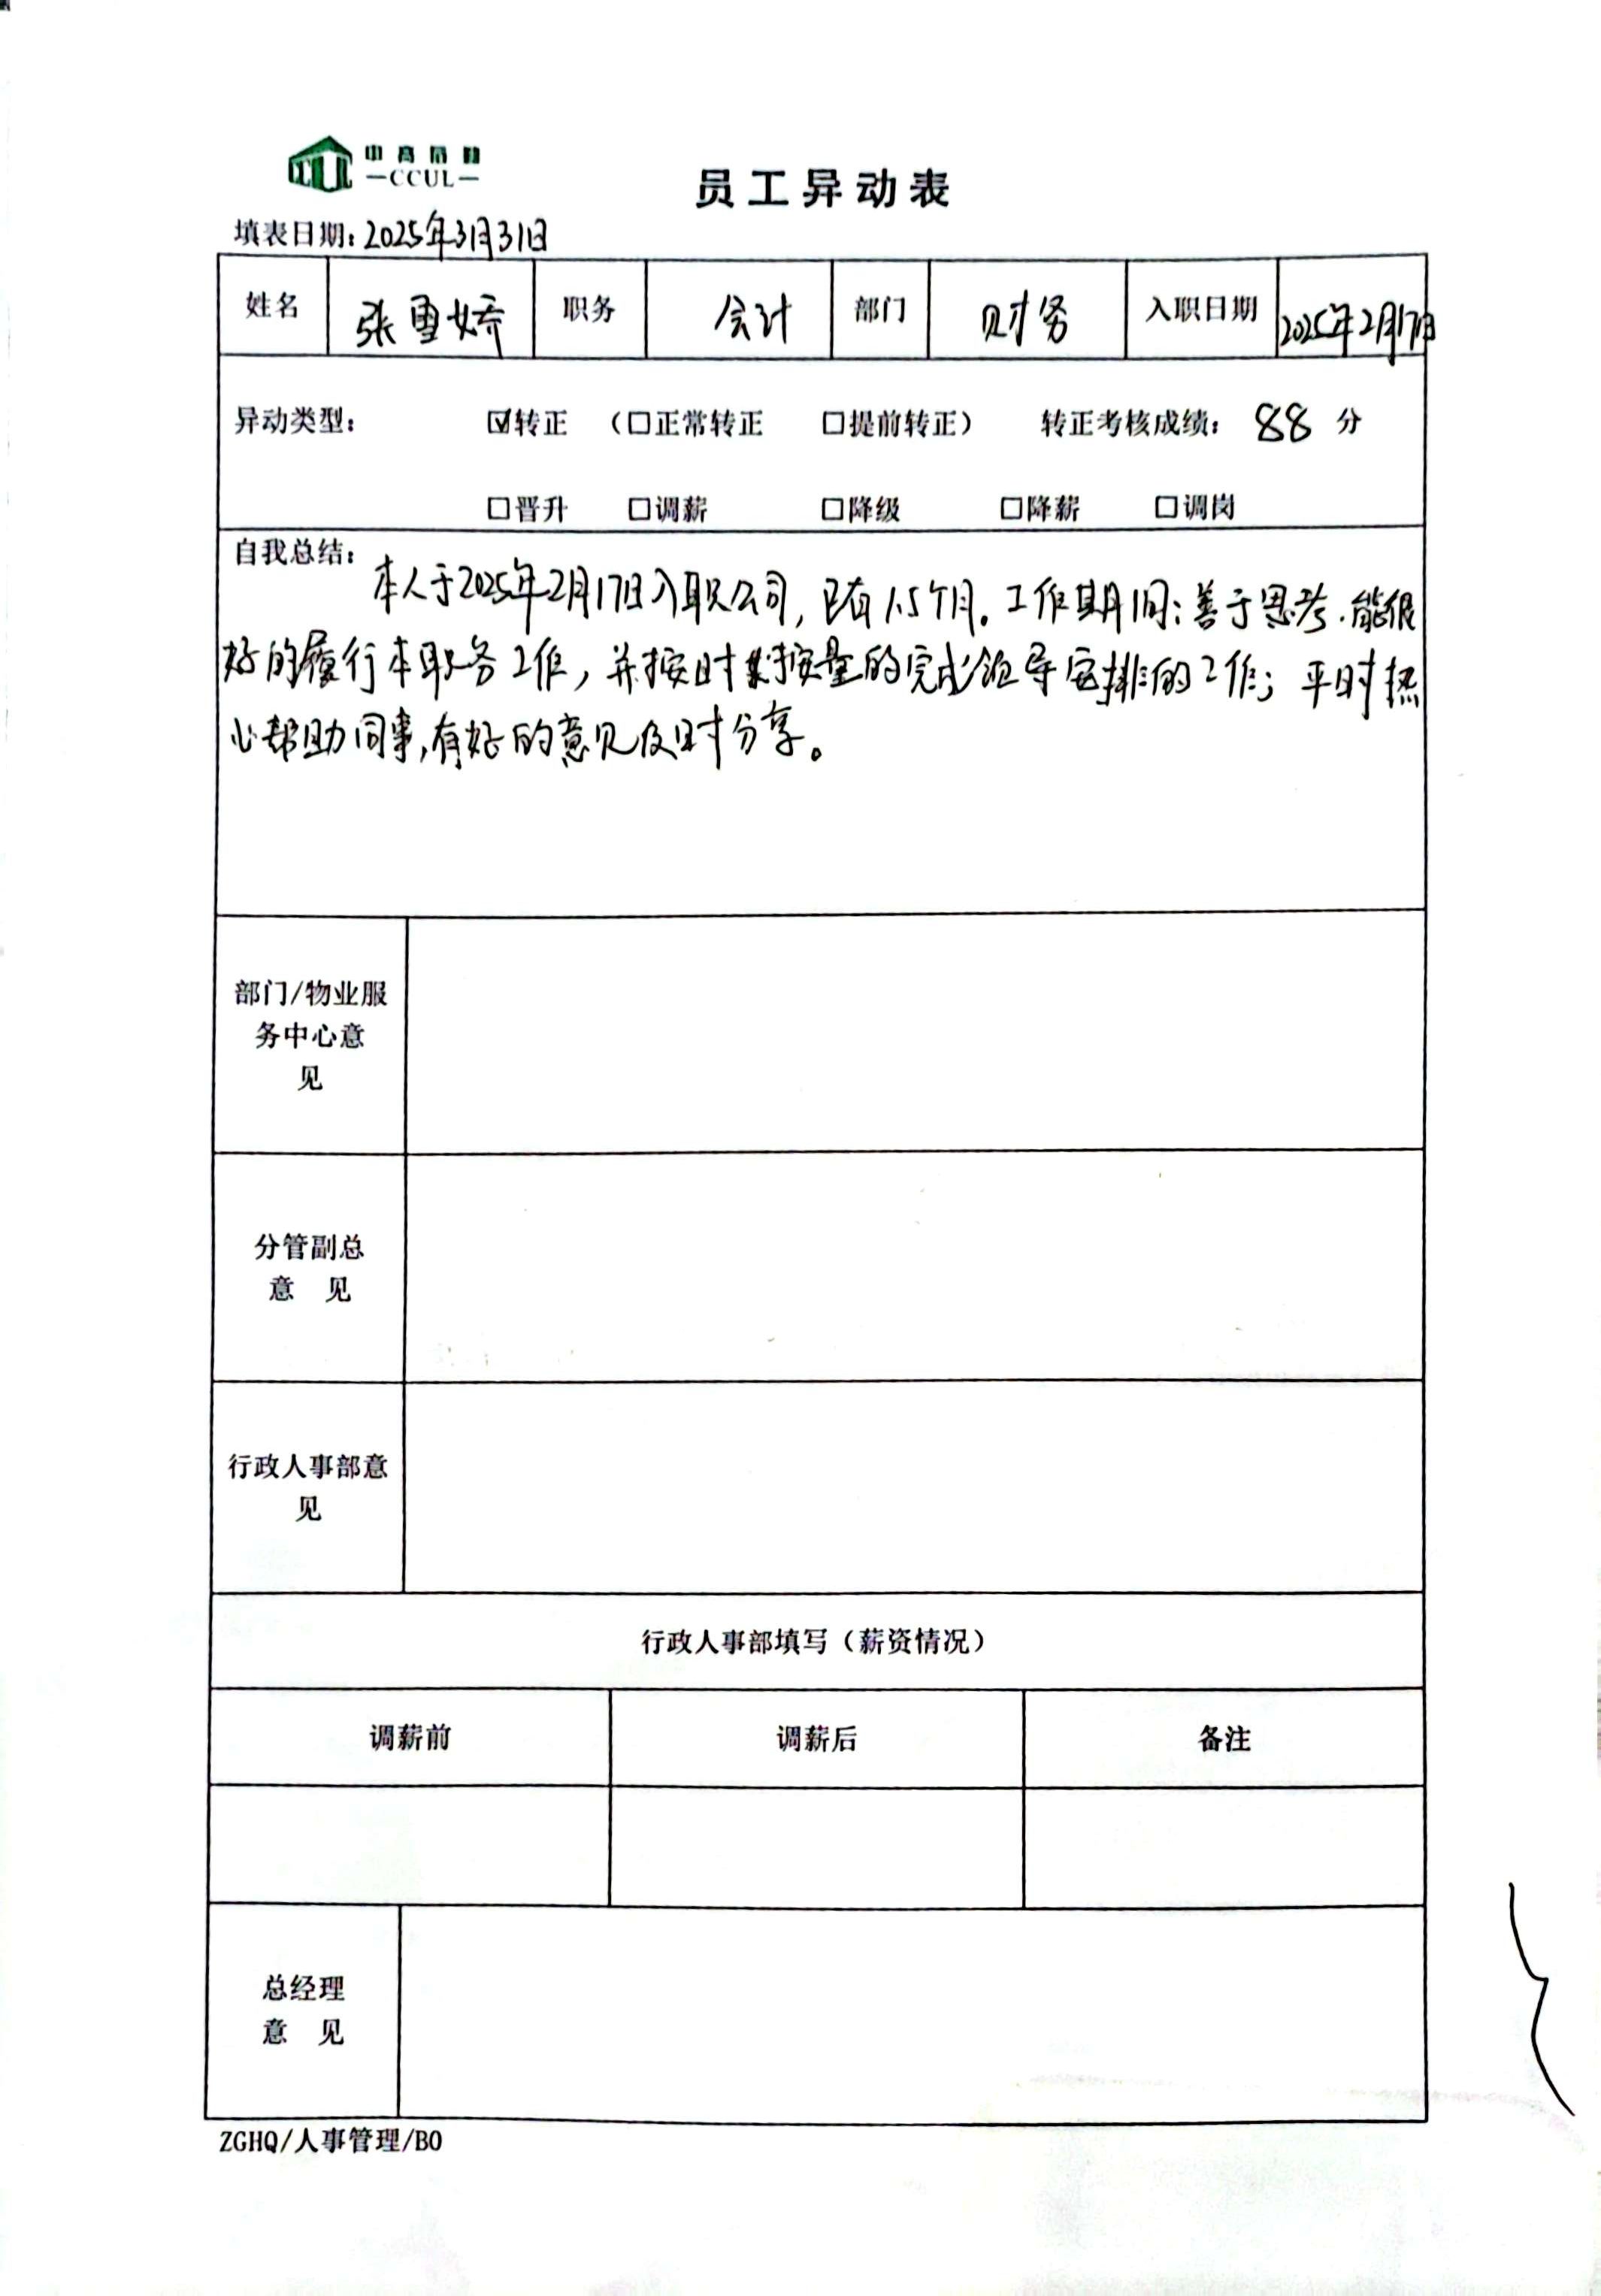 —CCUL—
员工异动表
填表日期：2025年3月31日
姓名 张雪娇 职务 会计 部门 财务 入职日期 2025年2月17日
异动类型： ☑转正 （□正常转正 □提前转正） 转正考核成绩： 88 分
□晋升 □调薪 □降级 □降薪 □调岗
自我总结：
本人于2025年2月17日入职公司，已有1.5个月。工作期间：善于思考.能很
好的履行本职务工作，并按时按量的完成领导安排的工作；平时热
心帮助同事,有好的意见及时分享。
部门/物业服
务中心意
见
分管副总
意 见
行政人事部意
见
行政人事部填写（薪资情况）
调薪前 调薪后 备注
总经理
意 见
ZGHQ/人事管理/B0